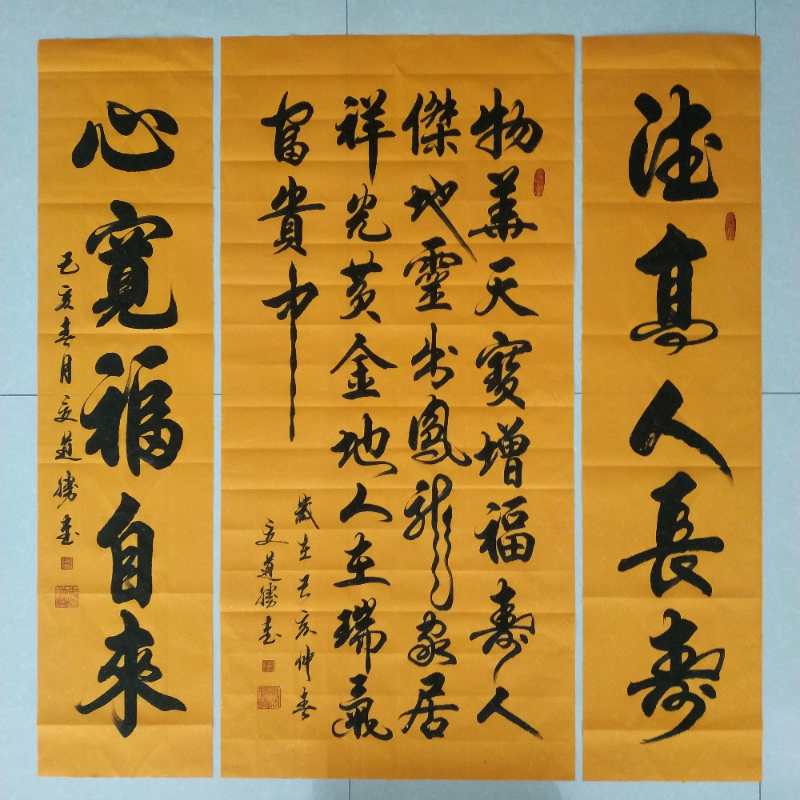 德高人長壽
物華天寶增福壽人
傑地靈出鳳龍家居
祥光黃金地人在瑞氣
富貴中
歲在己亥仲春
道勝書
心寬福自來
己亥春月道勝書